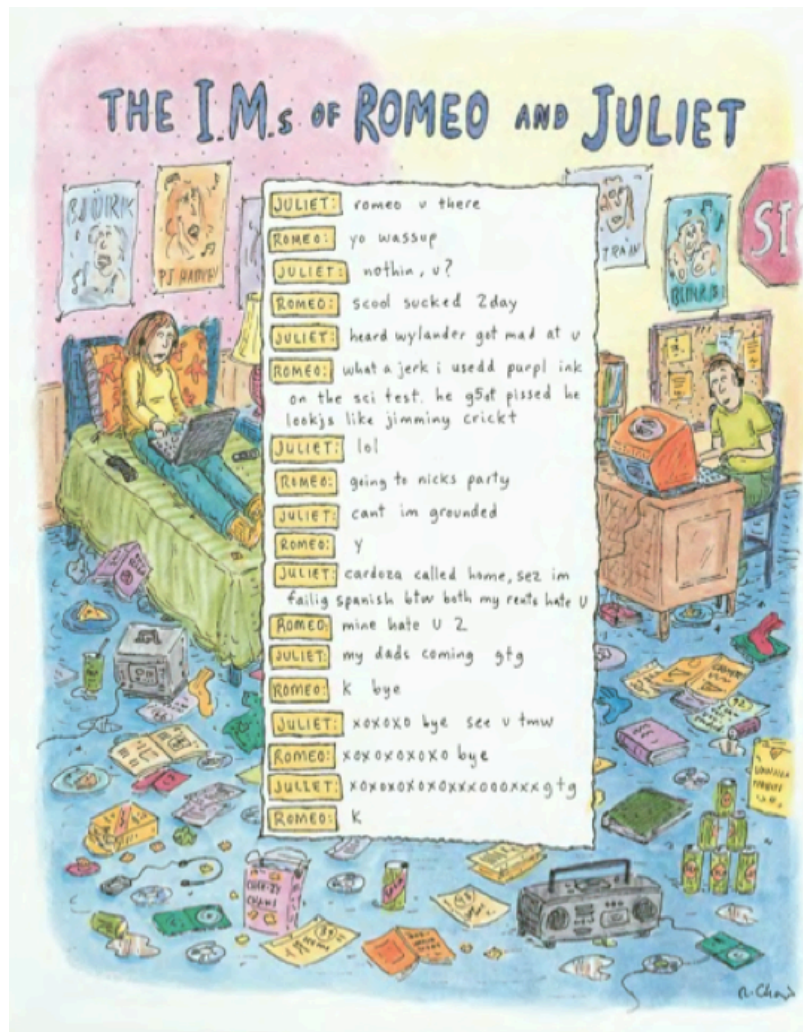 THE I.M.s OF ROMEO AND JULIET
BJÖRK
PJ HARVEY
TRAIN
JULIET: romeo u there
ROMEO: yo wassup
JULIET: nothin, u?
ROMEO: scool sucked 2day
JULIET: heard wylander got mad at u
ROMEO: what a jerk i usedd purpl ink
on the sci test. he g5ot pissed he
lookjs like jimminy crickt
JULIET: lol
ROMEO: going to nicks party
JULIET: cant im grounded
ROMEO: y
JULIET: cardoza called home, sez im
failig spanish btw both my rents hate u
ROMEO: mine hate u 2
JULIET: my dads coming gtg
ROMEO: k bye
JULIET: xoxoxo bye see u tmw
ROMEO: xoxoxoxoxo bye
JULIET: xoxoxoxoxoxxxoooxxxgtg
ROMEO: k